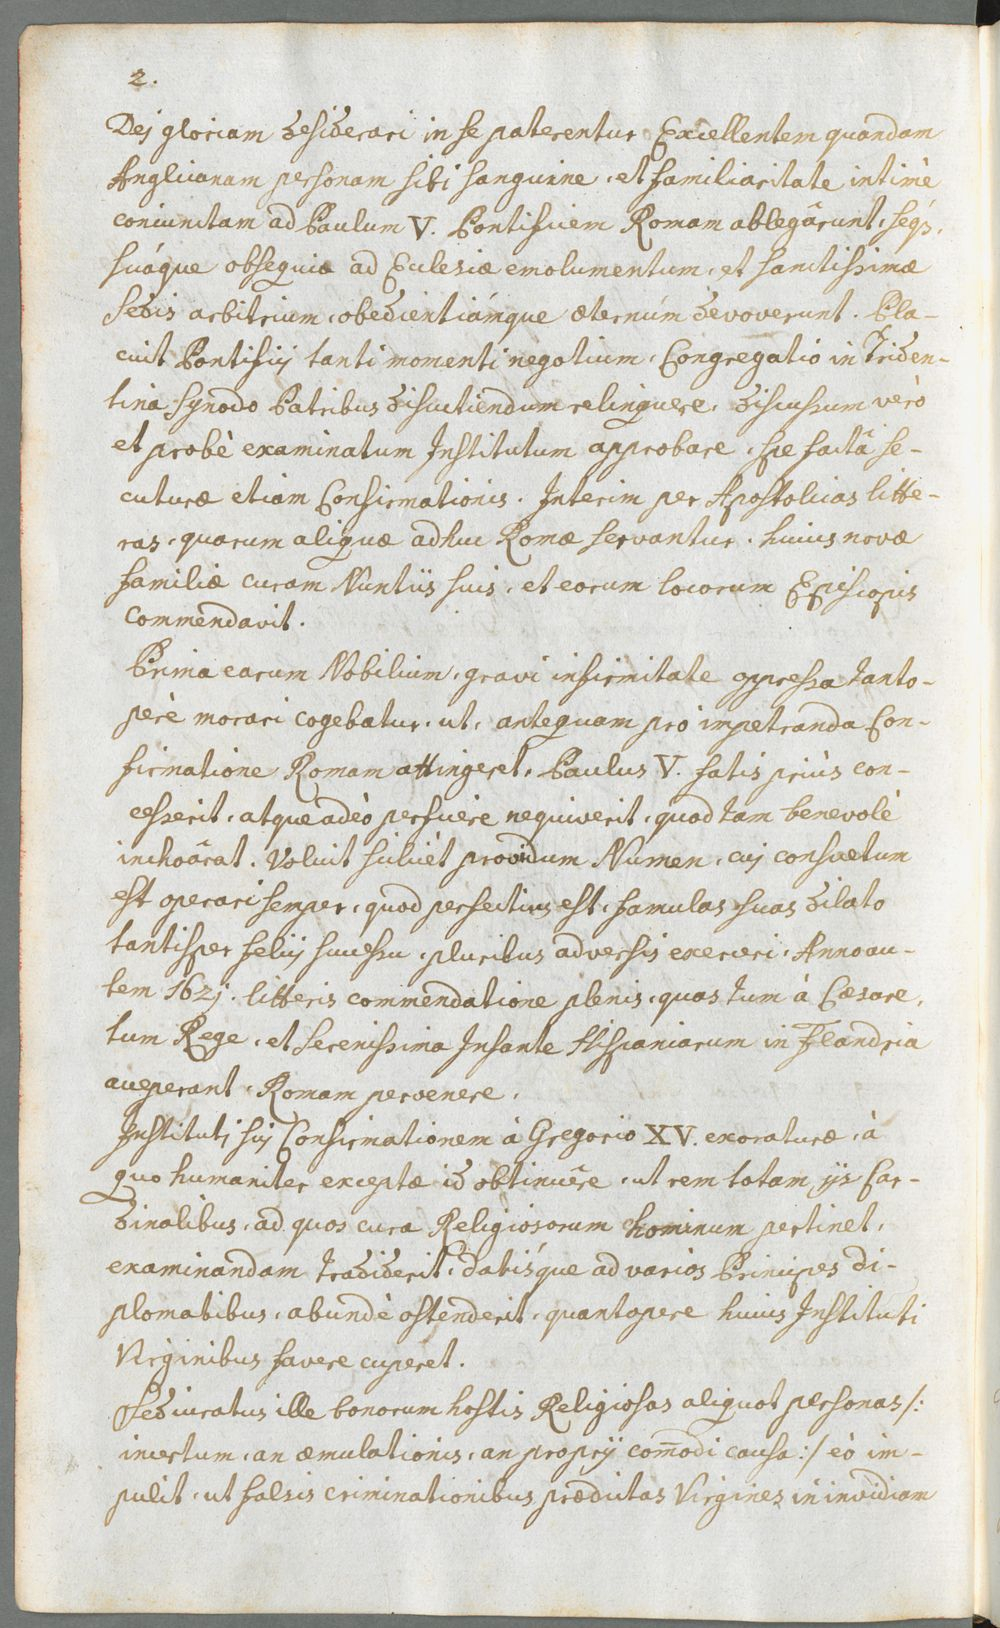 2.
Dej gloriam desiderari in se paterentur, Excellentem quandam
Anglicanam personam sibi sanguine, et familiaritate intimè
coniunctam ad Paulum V. Pontificem Romam ablegârunt, seq́3,
suáque obsequia ad Eclesiæ emolumentum, et sanctissimæ
sedis arbitrium, obedientiámque æternúm devoverunt. Pla-
cuit Pontificij tanti momenti negotium, Congregatio in Triden-
tina Synodo Patribus discutiendum relinquere, discussum verò
et probè examinatum Institutum approbare, spe factâ se-
cuturæ etiam Confirmationis. Interim per Apostolicas litte-
ras, quarum aliquæ adhuc Romæ servantur, huius novæ
familiæ curam Nuntiis suis, et eorum locorum Episcopis
commendavit.
Prima earum Nobilium, gravi infirmitate oppressa tanto-
perè morari cogebatur, ut, antequam pro impetranda Con-
firmatione Romam attingeret, Paulus V. fatis priùs con-
cesserit, atque adeò perficere nequiverit, quod tam benevolè
inchoârat. Voluit scilicèt providum Numen, cuj consuetum
est operari semper, quod perfectius est, famulas suas dilato
tantisper felicj successu, pluribus adversis exerceri. Anno au-
tem 162j. litteris commendatione plenis, quas tum à Cæsare,
tum Rege, et Serenissima Infante Hispaniarum in Flandria
acceperant, Romam pervenere.
Institutj suj Confirmationem à Gregorio XV. exoraturæ, à
quo humaniter exceptæ id obtinuêre, ut rem totam ijs Car-
dinalibus, ad quos cura Religiosorum hominum pertinet,
examinandam tradiderit, datísque ad varios Principes di-
plomatibus, abundè ostenderit, quantopere huius Instituti
Virginibus favere cuperet.
Sed iuratus ille bonorum hostis Religiosas aliquot personas /:
incertum, an æmulationis, an proprij com̄odi causa :/ eò im-
pulit, ut falsis criminationibus prædictas Virgines in invidiam